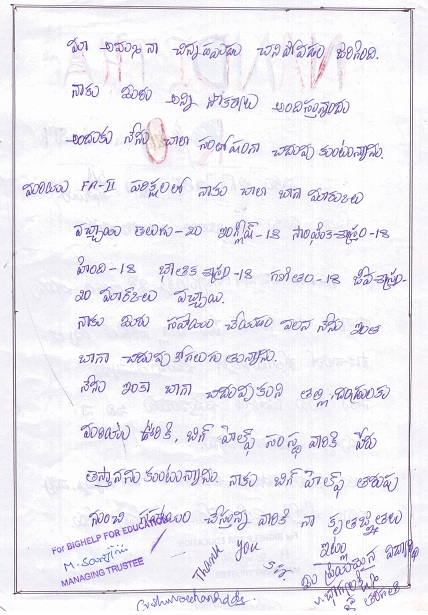 మా అమ్మ నా చిన్నపుడు చనిపోవడం జరిగింది.
నాకు మీరు అన్ని సౌకర్యాలు అందిస్తున్నందు
అందుకు నేను చాలా సంతోషంగా చదువుకుంటున్నాను.
మరియు FA-II పరీక్షలలో నాకు చాలా బాగా మార్కులు
వచ్చాయి తెలుగు-20 ఇంగ్లీష్-18 సాంఘీకశాస్త్రం-18
హింది-18 భౌతికశాస్త్రం-18 గణితం-18 జీవశాస్త్రం-
20 మార్కులు వచ్చాయి.
నాకు మీరు సహాయం చేయడం వలన నేను ఇంత
బాగా చదువుకోగలుగుతున్నాను.
నేను ఇంకా బాగా చదువుకుని తల్లి,
మరియు ఊరికి, బిగ్ హెల్ప్ సంస్థ వారికి పేరు
తెస్తాననుకుంటున్నాను. నాకు బిగ్ హెల్ప్ తరుపు
నుంచి సహాయం చేస్తున్న వారికి నా కృతజ్ఞతలు
For BIGHELP FOR EDUCATION
M. Sarojini
MANAGING TRUSTEE
Thank you
ఇట్లు
మీ ప్రియమైన విద్యార్థి